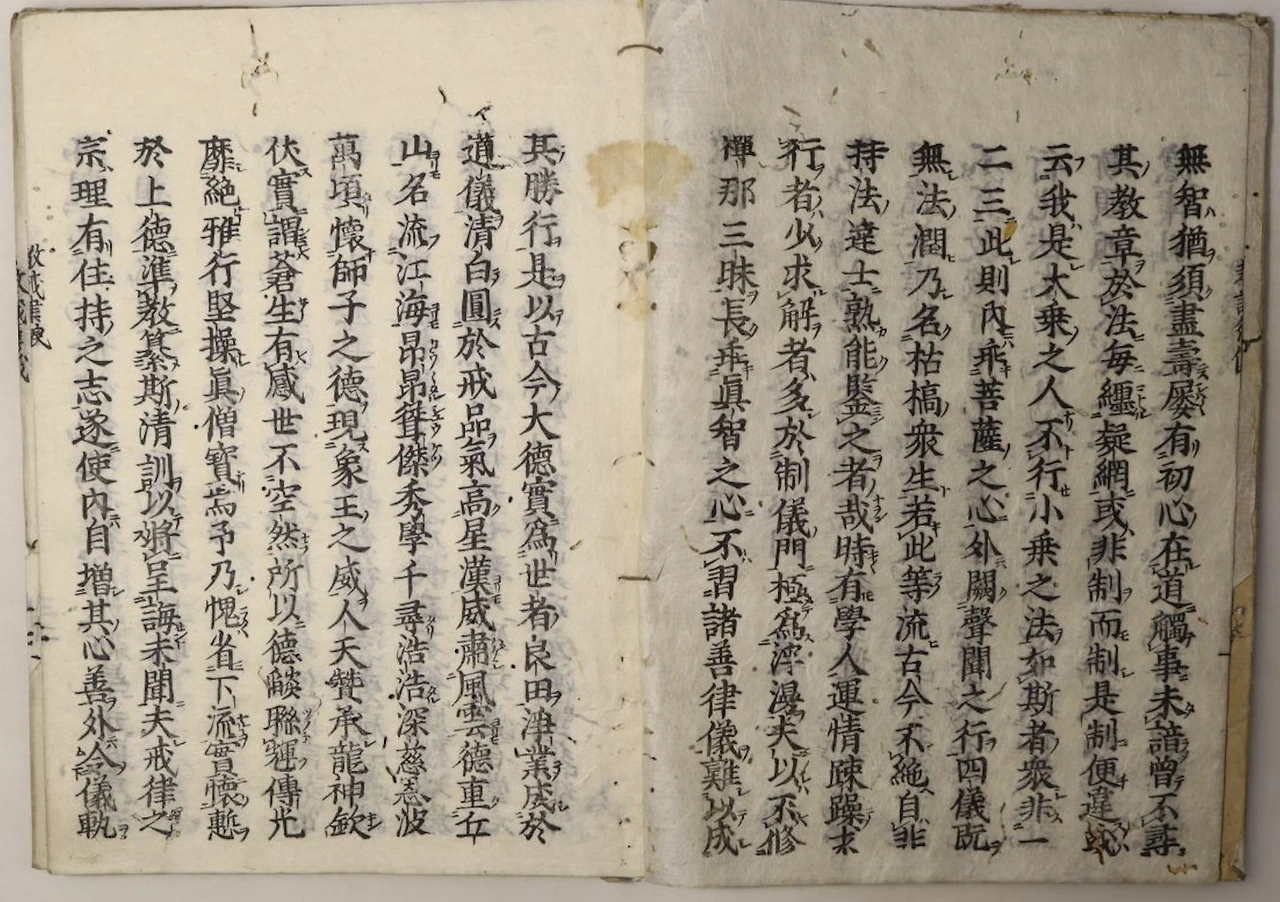 無智猶須盡壽屡有初心在道觸事未諳曾不尋
其教章於法每纏疑網或非制而制是制便違或
云我是大乗之人不行小乗之法如斯者衆非一
二三此則内乖菩薩之心外闕聲聞之行四儀既
無法潤乃名枯槁衆生若此等流古今不絶自非
持法達士熟能鑒之者哉時有學人運情疎躁未
行者少求解者多於制儀門極爲浮漫夫以不修
禪那三昧長乖眞智之心不習諸善律儀難以成
其勝行是以古今大德實爲世者良田淨業成於
道儀清白圓於戒品氣高星漢威肅風雲德車丘
山名流江海昂昂聳傑秀學千尋浩浩深慈恩波
萬頃懷師子之德現象王之威人天贊承龍神欽
伏實謂蒼生有感世不空然所以德燄聯輝傳光
靡絶雅行堅操眞僧寶焉予乃愧省下流實懷慙
於上德準教纂斯清訓以將呈誨未聞夫戒律之
宗理有住持之志遂使内自增其心善外令儀軌